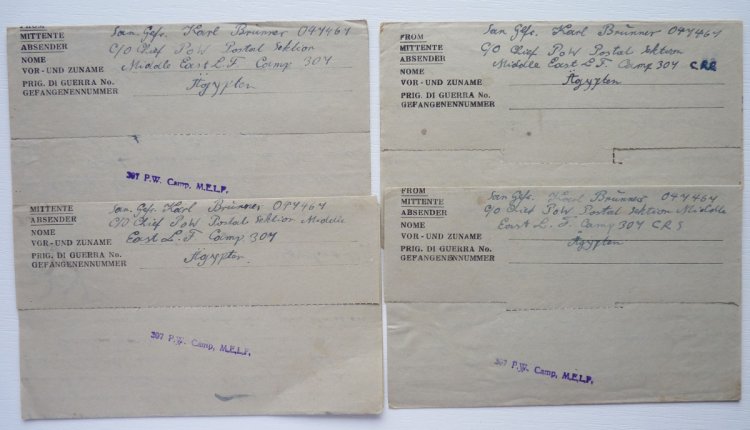 FROM
MITTENTE
ABSENDER
NOME
VOR - UND ZUNAME
PRIG. DI GUERRA No.
GEFANGENENNUMMER
San. Gefr. Karl Brünner 047467
C/o Chief PoW Postal Sektion
Middle East L. F. Camp 307
Ägypten
307 P.W. Camp, M.E.L.F.
FROM
MITTENTE
ABSENDER
NOME
VOR - UND ZUNAME
PRIG. DI GUERRA No.
GEFANGENENNUMMER
San Gefr. Karl Brünner 047467
C/o Chief PoW Postal Sektion
Middle East L. F. Camp 307 CRS
Ägypten
MITTENTE
ABSENDER
NOME
VOR - UND ZUNAME
PRIG. DI GUERRA No.
GEFANGENENNUMMER
San. Gefr. Karl Brünner 047467
C/O Chief PoW Postal Sektion Middle
East L. F. Camp 307
Ägypten
307 P.W. Camp, M.E.L.F.
FROM
MITTENTE
ABSENDER
NOME
VOR - UND ZUNAME
PRIG. DI GUERRA No.
GEFANGENENNUMMER
San Gefr. Karl Brünner 047467
C/o Chief PoW Postal Sektion Middle
East L. F. Camp 307 CRS
Ägypten
307 P.W. Camp, M.E.L.F.